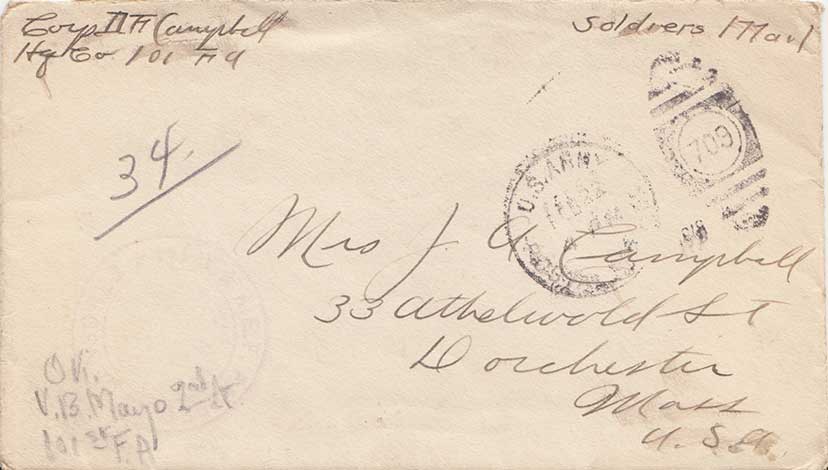 Corp. H A Campbell
Hq Co 101 F A
Soldiers Mail
34
U.S. ARMY
709
Mrs J. A Campbell
33 Athelwold St
Dorchester
Mass
U.S.A.
O.K.
V.B. Mayo 2nd Lt
101st F.A